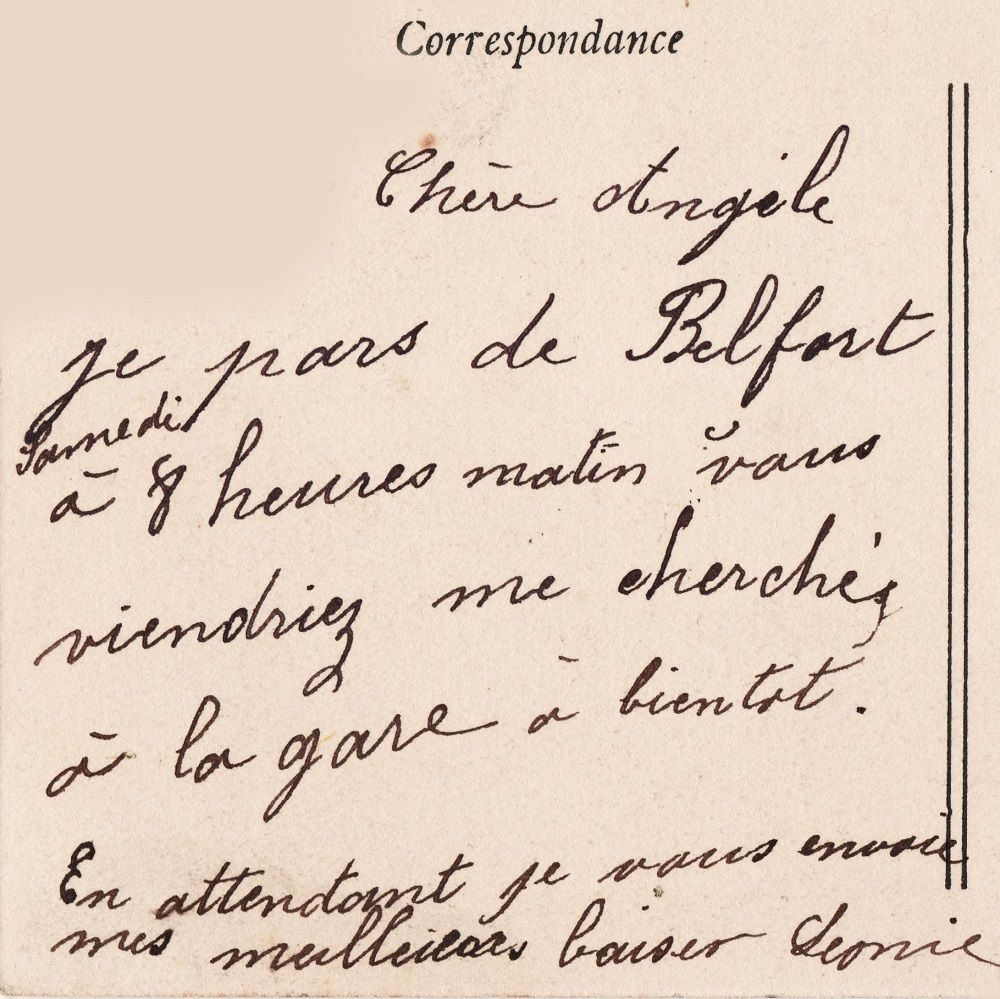 Correspondance
Chère Angèle
je pars de Belfort
Samedi
à 8 heures matin vous
viendriez me cherchéz
à la gare à bientot.
En attendant je vous envoie
mes meilleieurs baiser Leonie